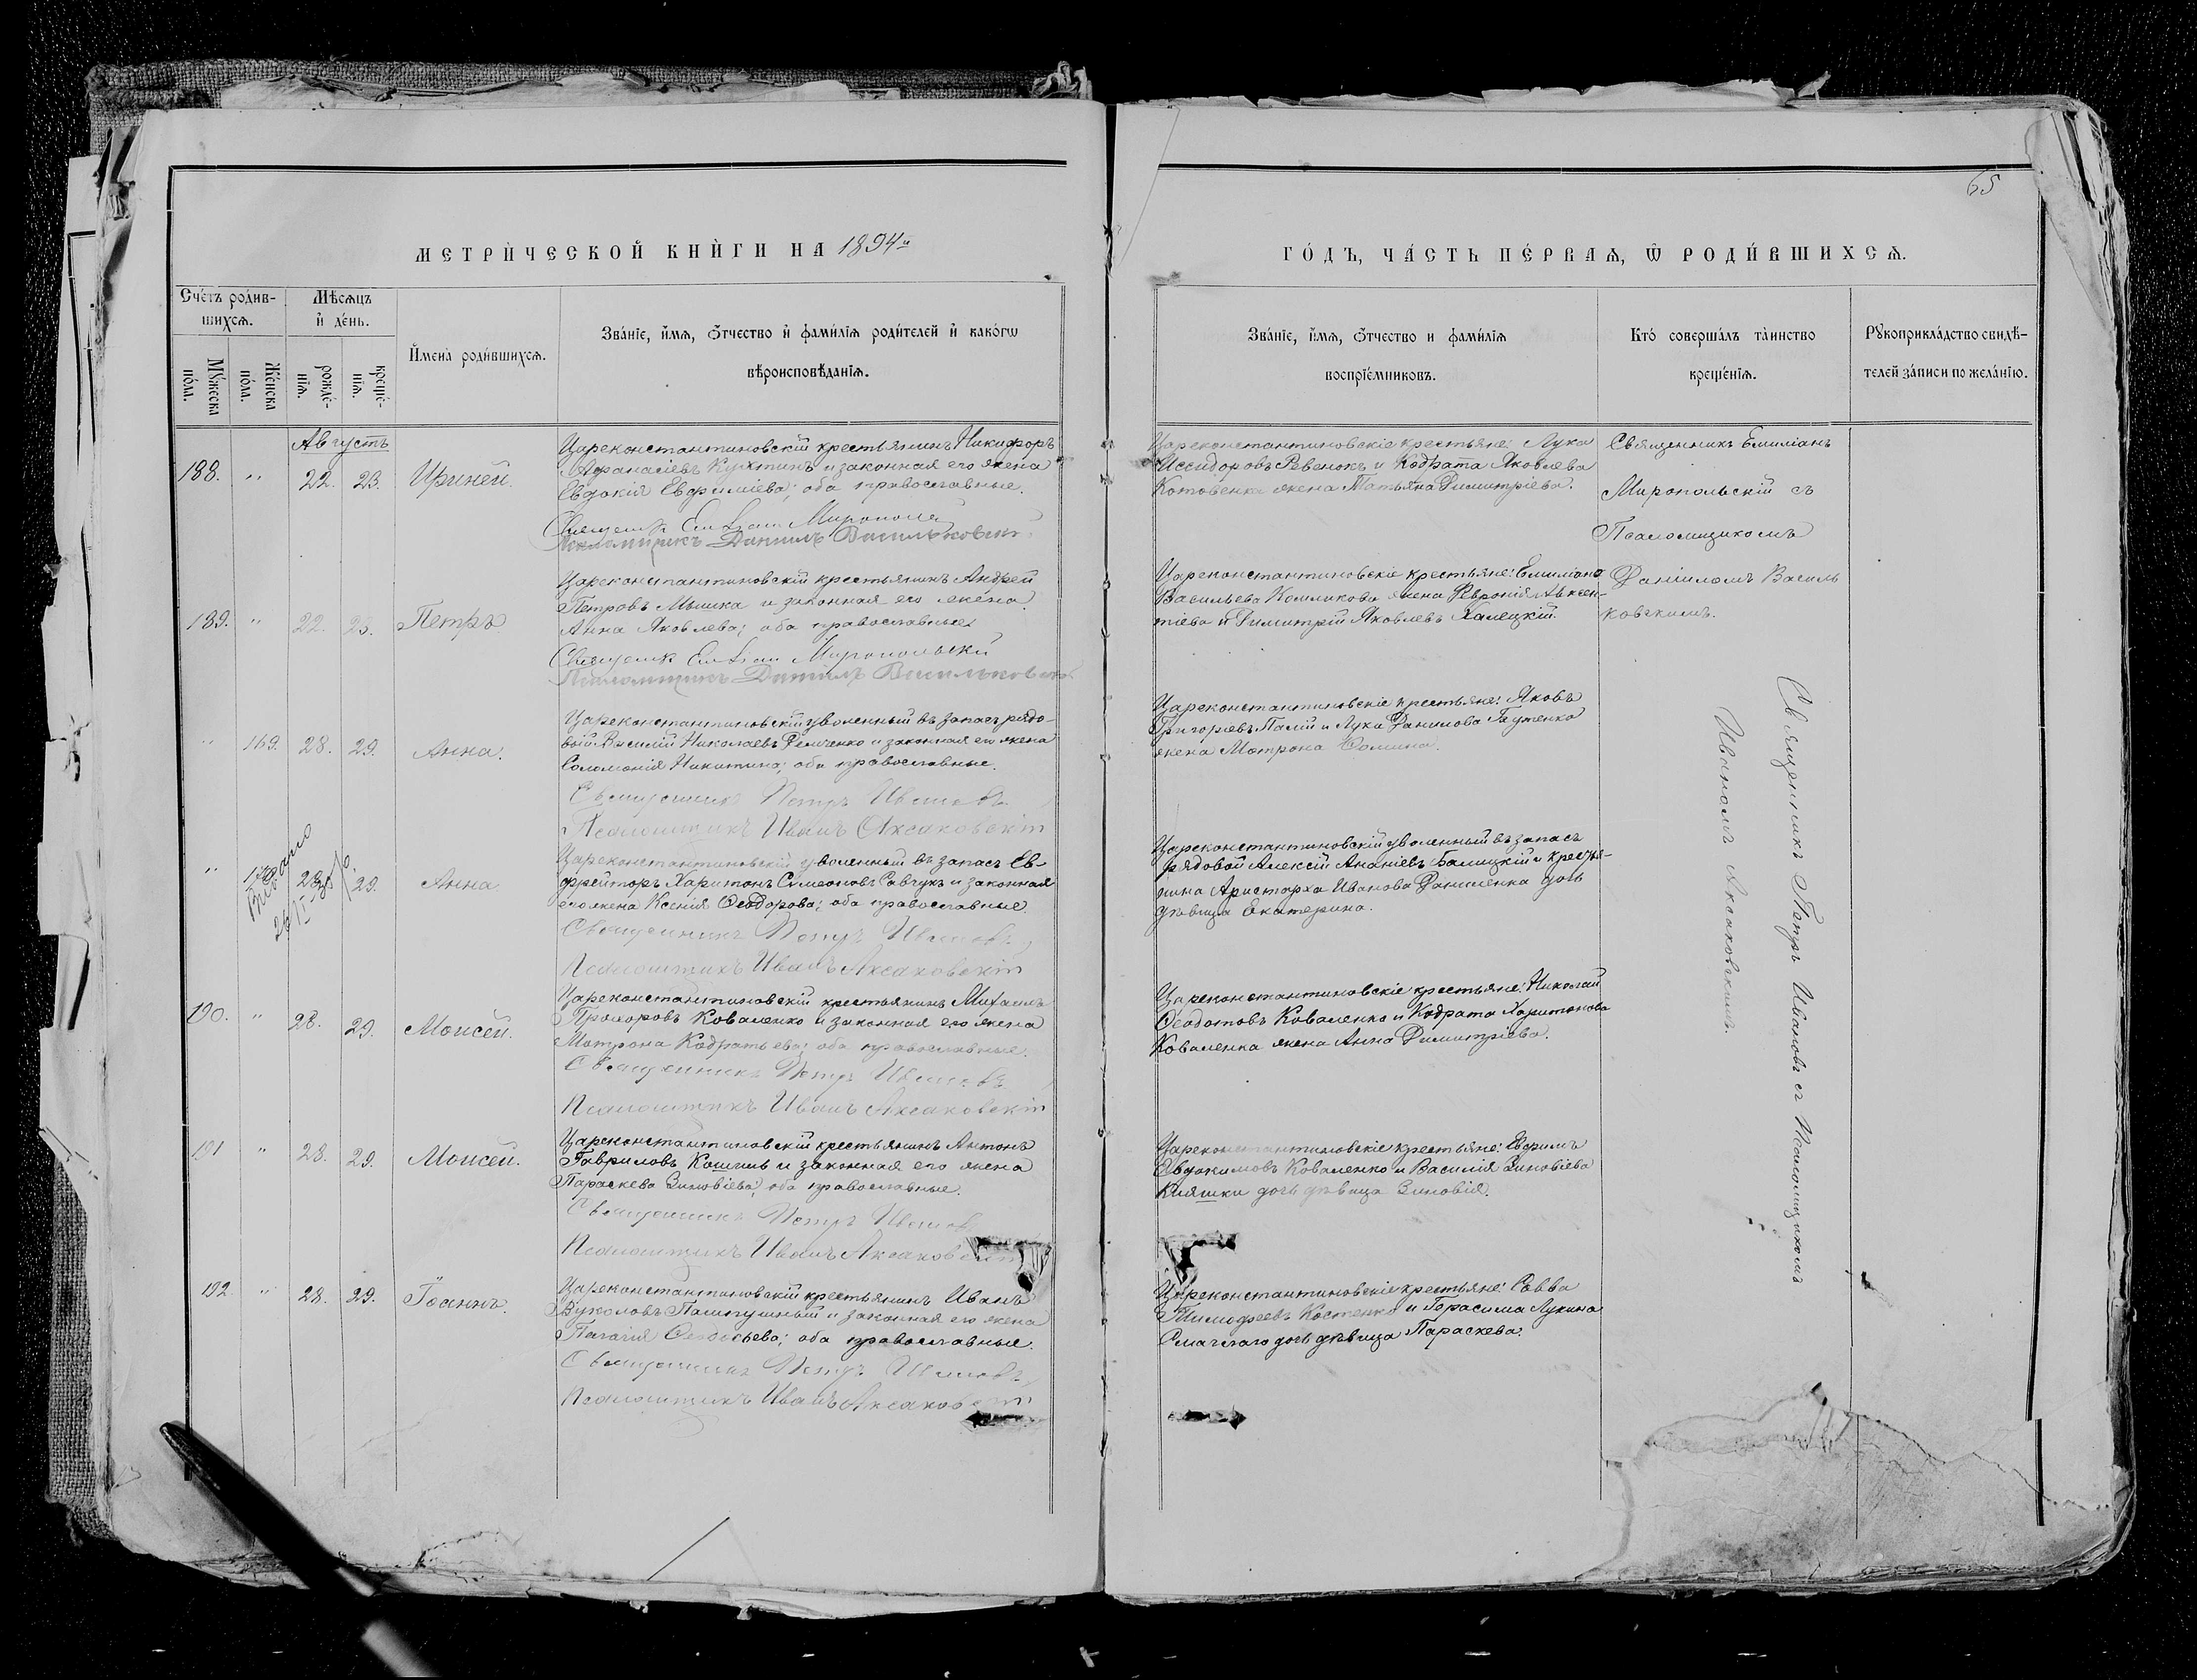 МЕТРИ́ЧЕСКОЙ КНИ́ГИ НА 1894й
Сче́тъ роди́в-
шихсѧ.
Мѣсѧцъ
и҆ де́нь.
Му́жеска
по́ла.
Же́нска
по́ла.
рожде́-
нїѧ.
креще́-
нїѧ.
И҆мена̀ роди́вшихсѧ.
Зва́нїе, и҆́мѧ, ѻ҆́тчество и҆ фами́лїѧ роди́телей и҆ како́гѡ
вѣроисповѣ́данїѧ.
Августъ
188. " 22. 23. Ириней.
Цареконстантиновскій крестьянинъ Никифоръ
Афанасіевъ Кухтинъ и законная его жена
Евдокія Евфиміева; оба православные.
Священник Емиліан Миропол
Псаломщикъ Даніилъ Васильковскі
189. " 22. 23. Петръ
Цареконстантиновскій крестьянинъ Андрей
Петровъ Мышка и законная его жена
Анна Яковлева; оба православные
Священник Емиліан Миропольскій
Псаломщикъ Даніилъ Васильковскі
" 169. 28. 29. Анна.
Цареконстантиновскій уволенный въ запасъ рядо-
вой Василій Николаевъ Ревченко и законная его жена
Соломонія Никитина; оба православные.
Священникъ Петръ Ивановъ
Псаломщикъ Иванъ Аксаковскій
" 28. 29. Анна
Цареконстантиновскій уволенный въ запасъ Ев-
фрейторъ Харитонъ Симеоновъ Савчукъ и законная
его жена Ксенія Ѳеодорова; оба православные.
Священникъ Петръ Ивановъ
Псаломщикъ Иванъ Аксаковскій
190. " 28. 29. Моисей.
Цареконстантиновскій крестьянинъ Михаилъ
Прохоровъ Коваленко и законная его жена
Матрона Кодратьева; оба православные.
Священникъ Петръ Ивановъ
Псаломщикъ Иванъ Аксаковскій
191 " 28. 29. Моисей.
Цареконстантиновскій крестьянинъ Антонъ
Гавриловъ Кошиль и законная его жена
Параскева Зиновіева; оба православные.
Священникъ Петръ Иванов
Псаломщикъ Иванъ Аксаковскій
192 " 28. 29. Іоаннъ.
Цареконстантиновскій крестьянинъ Иванъ
Вуколовъ и законная его жена
Пелагія Ѳеодосьева; оба православные.
Священникъ Петръ Ивановъ
Псаломщикъ Иванъ Аксаковскій
65
ГО́ДЪ, ЧА́СТЬ ПЕ́РВАѦ, Ѽ РОДИ́ВШИХСѦ.
Зва́нїе, и҆́мѧ, ѻ҆́тчество и фами́лїѧ
воспрїе́мниковъ.
Кто̀ соверша́лъ та́инство
креще́нїѧ.
Рꙋкоприкла́дство свидѣ́-
телей за́писи по жела́нїю.
Цареконстантиновскіе крестьяне: Лука
Исидоровъ Ревенокъ и Кодрата Яковлева
Котовенка жена Татьяна Димитріева.
Цареконстантиновскіе крестьяне: Емиліана
Васильева Комликова жена Февронія Авксен-
тіева и Димитрій Яковлевъ Халецкій.
Цареконстантиновскіе крестьяне: Яковъ
Григорьевъ Палій и Лука Данилова
жена Матрона Сомина.
Цареконстантиновскій уволенный въ запасъ
рядовой Алексій Ананіевъ Балицкій и крестья-
нина Аристарха Иванова Даниленка дочь
дѣвица Екатерина.
Цареконстантиновскіе крестьяне: Николай
Ѳеодотовъ Коваленко и Кодрата Харитонова
Коваленка жена Анна Димитріева.
Цареконстантиновскіе крестьяне: Ефимъ
Евдокимовъ Коваленко и Василія Зиновіева
Кияшки дочь дѣвица Зиновія.
Цареконстантиновскіе крестьяне: Савва
Тимофеевъ Костенко и Герасима Лукина
Смаглаго дочь дѣвица Параскева.
Священникъ Емиліанъ
Миропольскій съ
Псаломщикомъ
Даніиломъ Василь
ковскимъ.
Священникъ Петръ Ивановъ съ Псаломщикомъ
Иваномъ Аксаковскимъ.